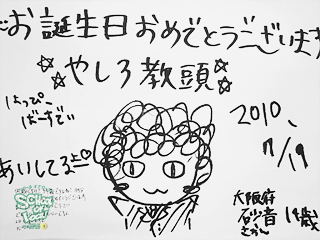 お誕生日おめでとうございます
☆やしろ教頭☆
はっぴー
ばーすでい
2010,
7/19
あいしてる
大阪府
砂音
18歳